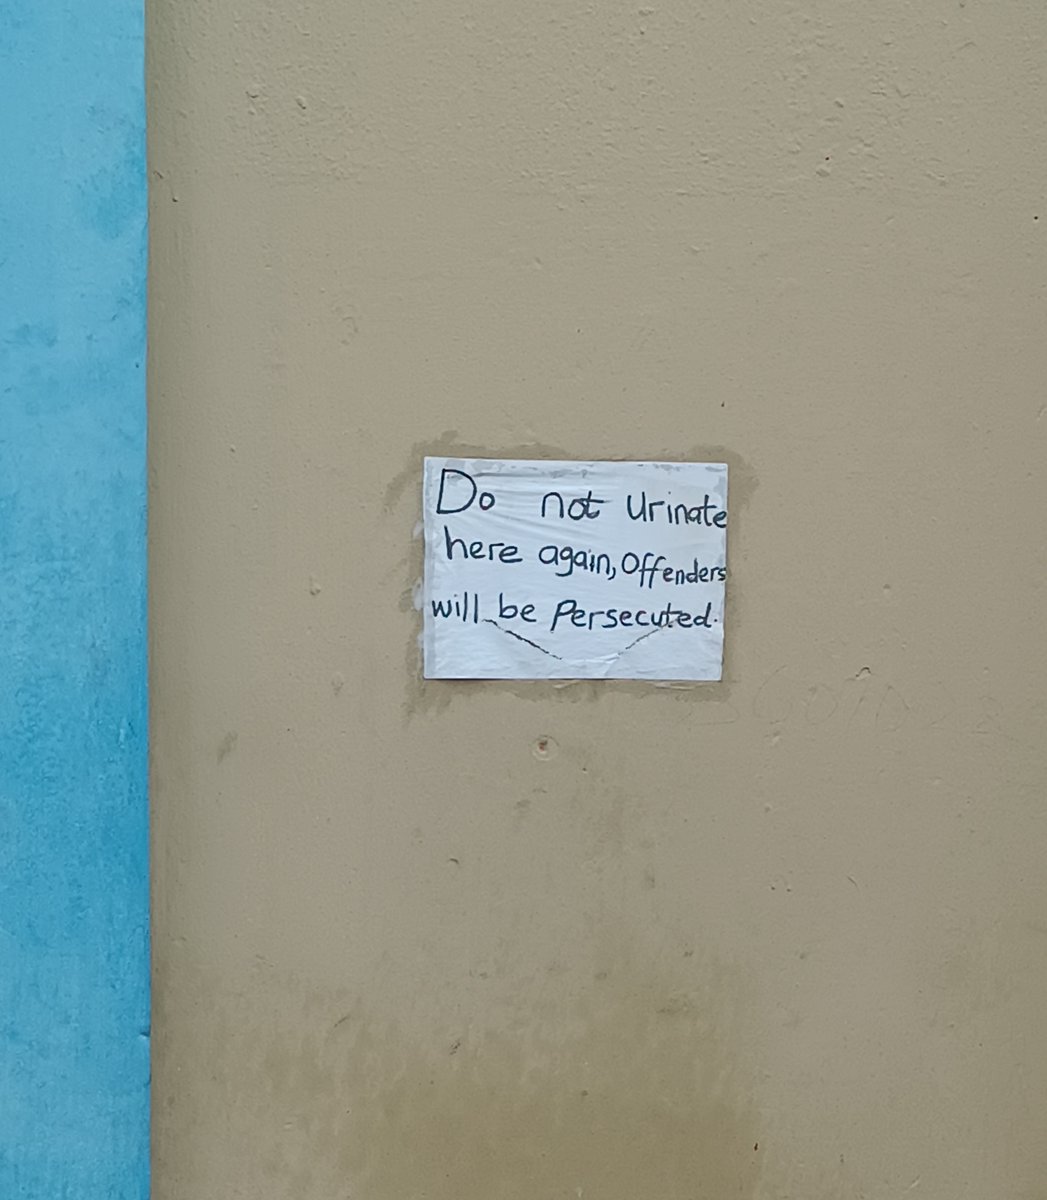 Do not Urinate
here again, Offenders
will be Persecuted.